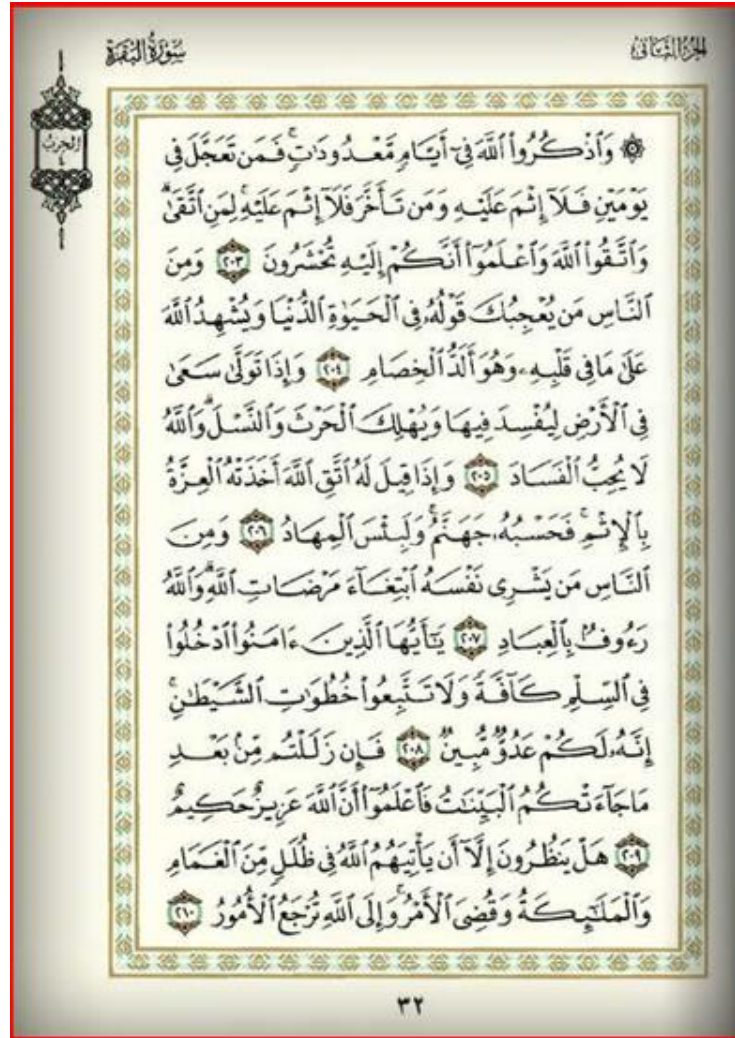 الجزء الثَّانِي
سُورَةُ البَقَرَةِ
الحزب
٤
۞ وَٱذْكُرُوا۟ ٱللَّهَ فِىٓ أَيَّامٍ مَّعْدُودَٰتٍ ۚ فَمَن تَعَجَّلَ فِى
يَوْمَيْنِ فَلَآ إِثْمَ عَلَيْهِ وَمَن تَأَخَّرَ فَلَآ إِثْمَ عَلَيْهِ ۚ لِمَنِ ٱتَّقَىٰ ۗ
وَٱتَّقُوا۟ ٱللَّهَ وَٱعْلَمُوٓا۟ أَنَّكُمْ إِلَيْهِ تُحْشَرُونَ ٢٠٣ وَمِنَ
ٱلنَّاسِ مَن يُعْجِبُكَ قَوْلُهُۥ فِى ٱلْحَيَوٰةِ ٱلدُّنْيَا وَيُشْهِدُ ٱللَّهَ
عَلَىٰ مَا فِى قَلْبِهِۦ وَهُوَ أَلَدُّ ٱلْخِصَامِ ٢٠٤ وَإِذَا تَوَلَّىٰ سَعَىٰ
فِى ٱلْأَرْضِ لِيُفْسِدَ فِيهَا وَيُهْلِكَ ٱلْحَرْثَ وَٱلنَّسْلَ ۗ وَٱللَّهُ
لَا يُحِبُّ ٱلْفَسَادَ ٢٠٥ وَإِذَا قِيلَ لَهُ ٱتَّقِ ٱللَّهَ أَخَذَتْهُ ٱلْعِزَّةُ
بِٱلْإِثْمِ ۚ فَحَسْبُهُۥ جَهَنَّمُ ۚ وَلَبِئْسَ ٱلْمِهَادُ ٢٠٦ وَمِنَ
ٱلنَّاسِ مَن يَشْرِى نَفْسَهُ ٱبْتِغَآءَ مَرْضَاتِ ٱللَّهِ ۗ وَٱللَّهُ
رَءُوفٌۢ بِٱلْعِبَادِ ٢٠٧ يَٰٓأَيُّهَا ٱلَّذِينَ ءَامَنُوا۟ ٱدْخُلُوا۟
فِى ٱلسِّلْمِ كَآفَّةً وَلَا تَتَّبِعُوا۟ خُطُوَٰتِ ٱلشَّيْطَٰنِ ۚ
إِنَّهُۥ لَكُمْ عَدُوٌّ مُّبِينٌ ٢٠٨ فَإِن زَلَلْتُم مِّنۢ بَعْدِ
مَا جَآءَتْكُمُ ٱلْبَيِّنَٰتُ فَٱعْلَمُوٓا۟ أَنَّ ٱللَّهَ عَزِيزٌ حَكِيمٌ
٢٠٩ هَلْ يَنظُرُونَ إِلَّآ أَن يَأْتِيَهُمُ ٱللَّهُ فِى ظُلَلٍ مِّنَ ٱلْغَمَامِ
وَٱلْمَلَٰٓئِكَةُ وَقُضِىَ ٱلْأَمْرُ ۚ وَإِلَى ٱللَّهِ تُرْجَعُ ٱلْأُمُورُ ٢١٠
٣٢